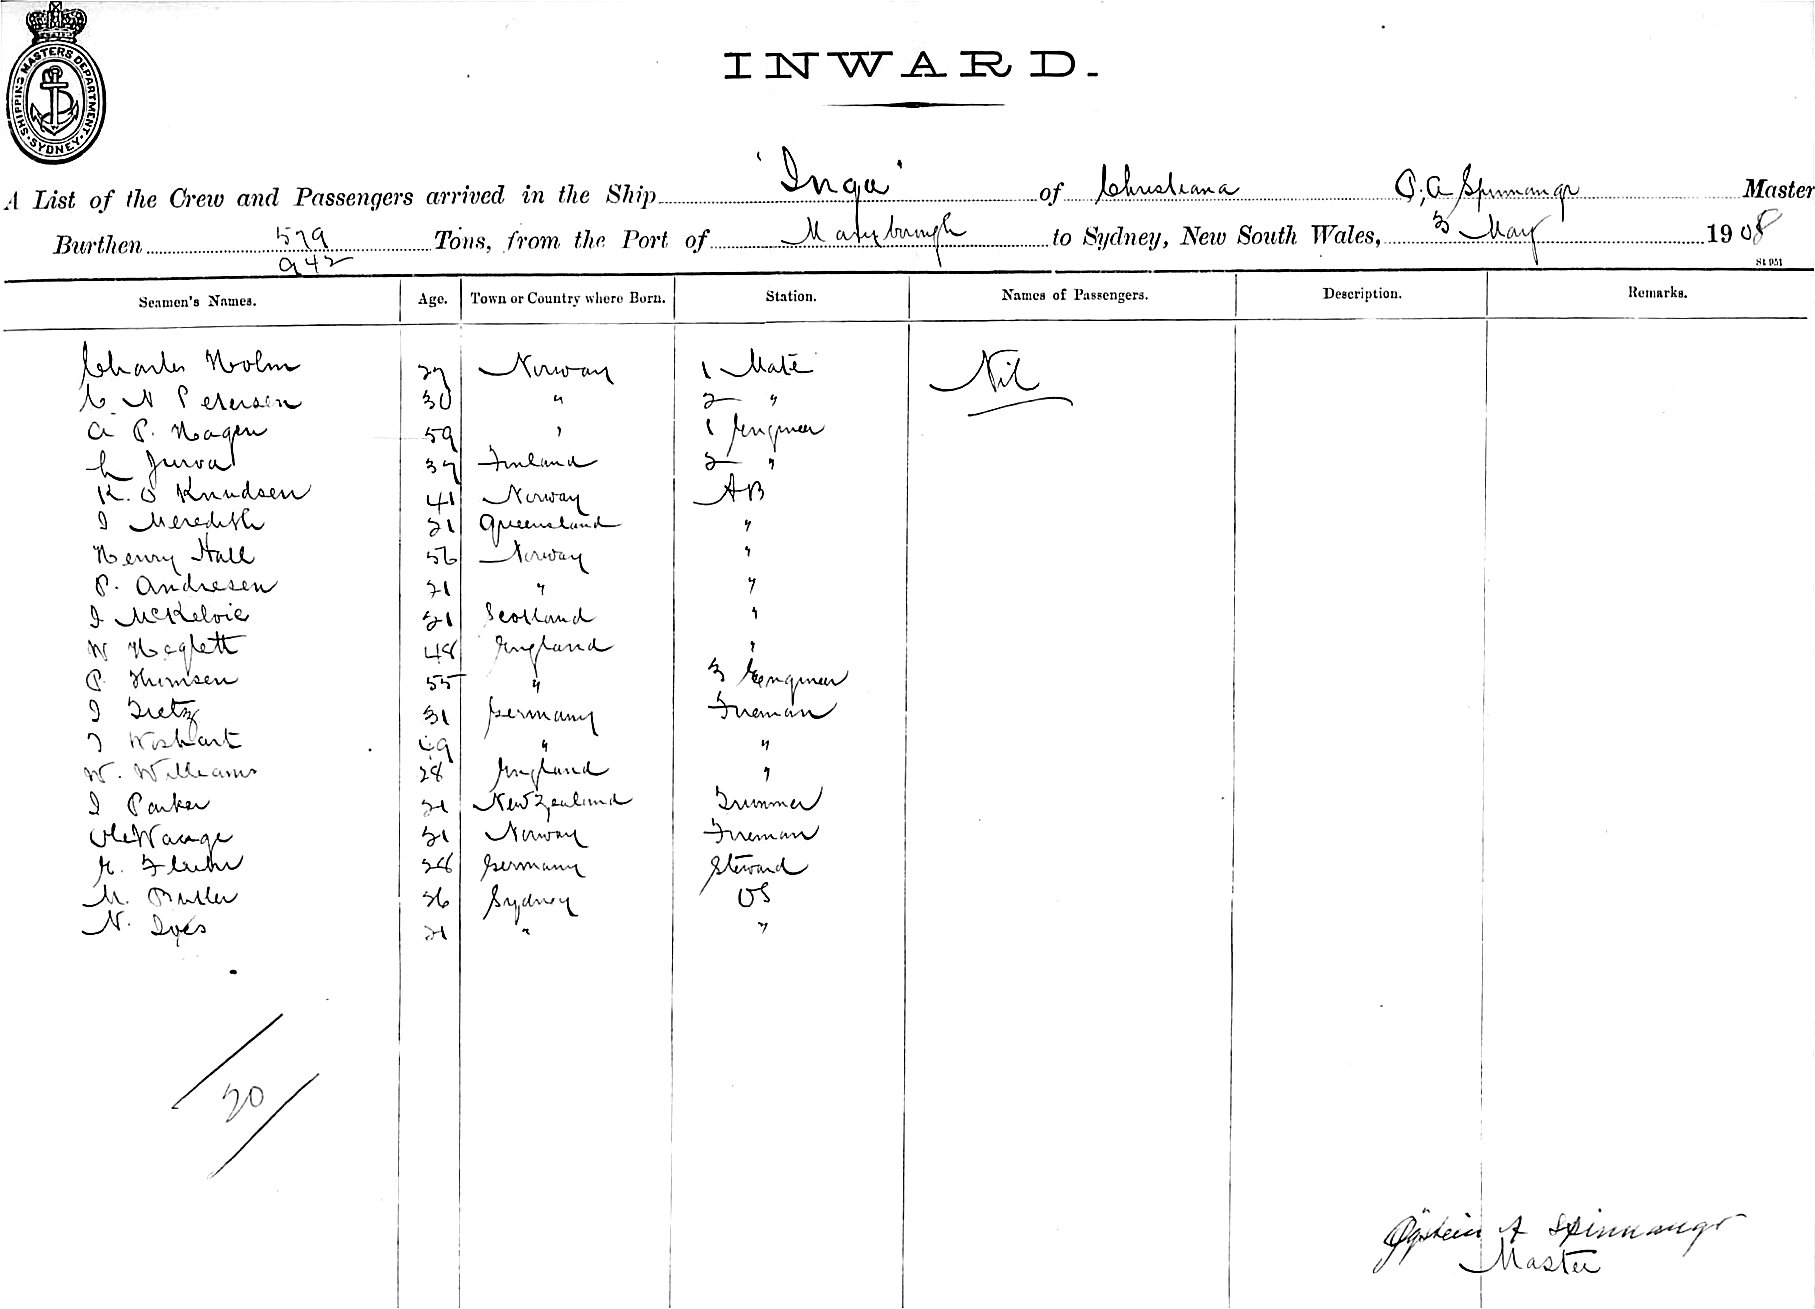 SHIPPING MASTERS DEPARTMENT · SYDNEY ·
INWARD.
A List of the Crew and Passengers arrived in the Ship 'Inga' of Christiana O, A Spinnangr Master
Burthen 579 Tons, from the Port of Maryborough to Sydney, New South Wales, 3 May 1908
942
Seamen's Names. Age. Town or Country where Born. Station. Names of Passengers. Description. Remarks.
Charles Holm 27 Norway 1 Mate Nil
C. N Petersen 30 " 2 "
A P. Hagen 59 " 1 Engineer
L Jurva 37 Finland 2 "
K. O Knudsen 41 Norway AB
J Meredith 21 Queensland "
Henry Hall 56 Norway "
P. Andresen 21 " "
J McKelvie 21 Scotland "
W 48 England "
P. Thomsen 55 " 3 Engineer
J Tietz 31 Germany Fireman
J Wishart " "
W. Williams 28 England "
J Parker 21 New Zealand Trimmer
Ole Waage 21 Norway Fireman
28 Germany Steward
M. Butler 26 Sydney OS
N. Ives 21 " "
20
Øystein A Spinnangr
Master